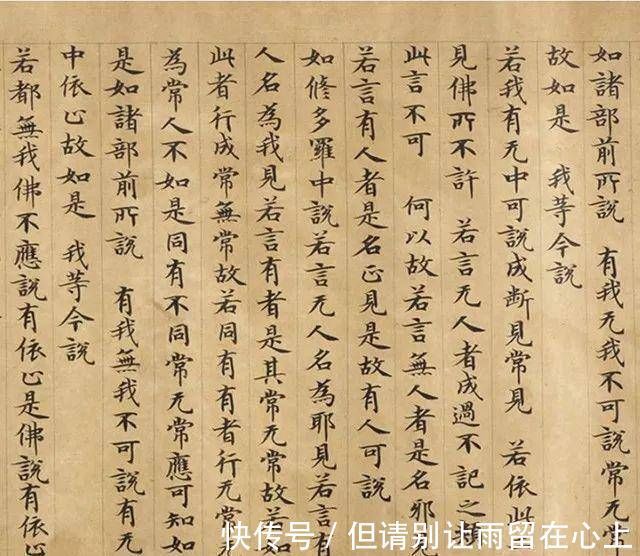 如諸部前所說 有我无我不可說常无
故如是 我等今說
若我有无中可說成断見常見 若依此
見佛所不許 若言无人者成過不記之
此言不可 何以故若言無人者是名邪
若言有人者是名正見是故有人可說
如脩多羅中說若言无人名為耶見若言有
人名為我見若言有者是其常无常故若
此者行成常無常故若同有有者行无常
為常人不如是同有不同常无常應可知如
是如諸部前所說 有我無我不可說有无
中依止故如是 我等今說
若都無我佛不應說有依止是佛說有依止
快传号 / 但请别让雨留在心上